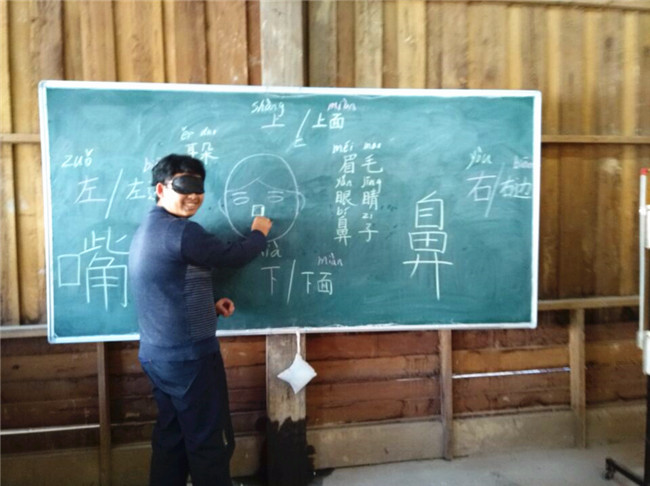 shàng miàn
上/上面
ěr duo
耳朵
zuǒ
左/左
méi mao
眉毛
yǎn jing
眼睛
bí zi
鼻子
yòu
右/右边
嘴
鼻
miàn
下/下面